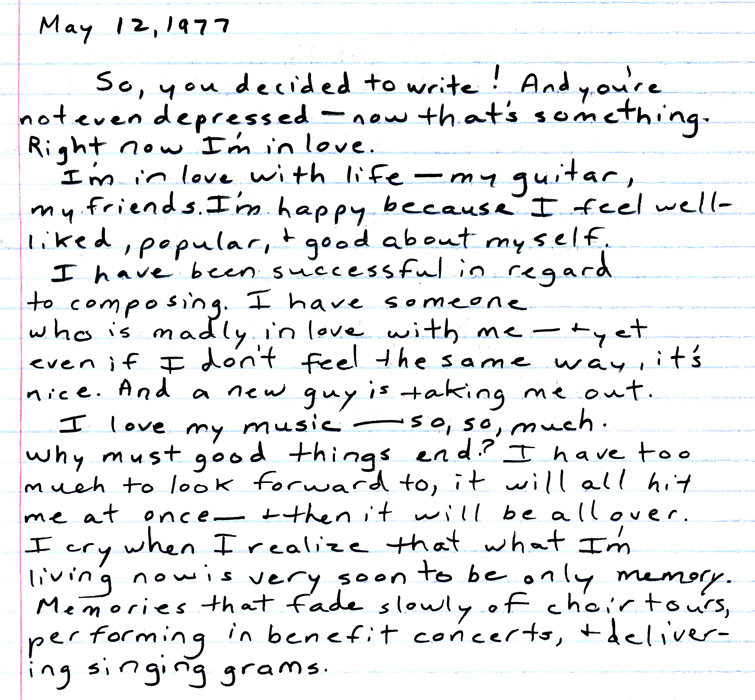 May 12, 1977
So, you decided to write! And you're
not even depressed — now that's something.
Right now I'm in love.
I'm in love with life — my guitar,
my friends. I'm happy because I feel well-
liked, popular, + good about myself.
I have been successful in regard
to composing. I have someone
who is madly in love with me — + yet
even if I don't feel the same way, it's
nice. And a new guy is taking me out.
I love my music — so, so, much.
Why must good things end? I have too
much to look forward to, it will all hit
me at once — + then it will be all over.
I cry when I realize that what I'm
living now is very soon to be only memory.
Memories that fade slowly of choir tours,
performing in benefit concerts, + deliver-
ing singing grams.